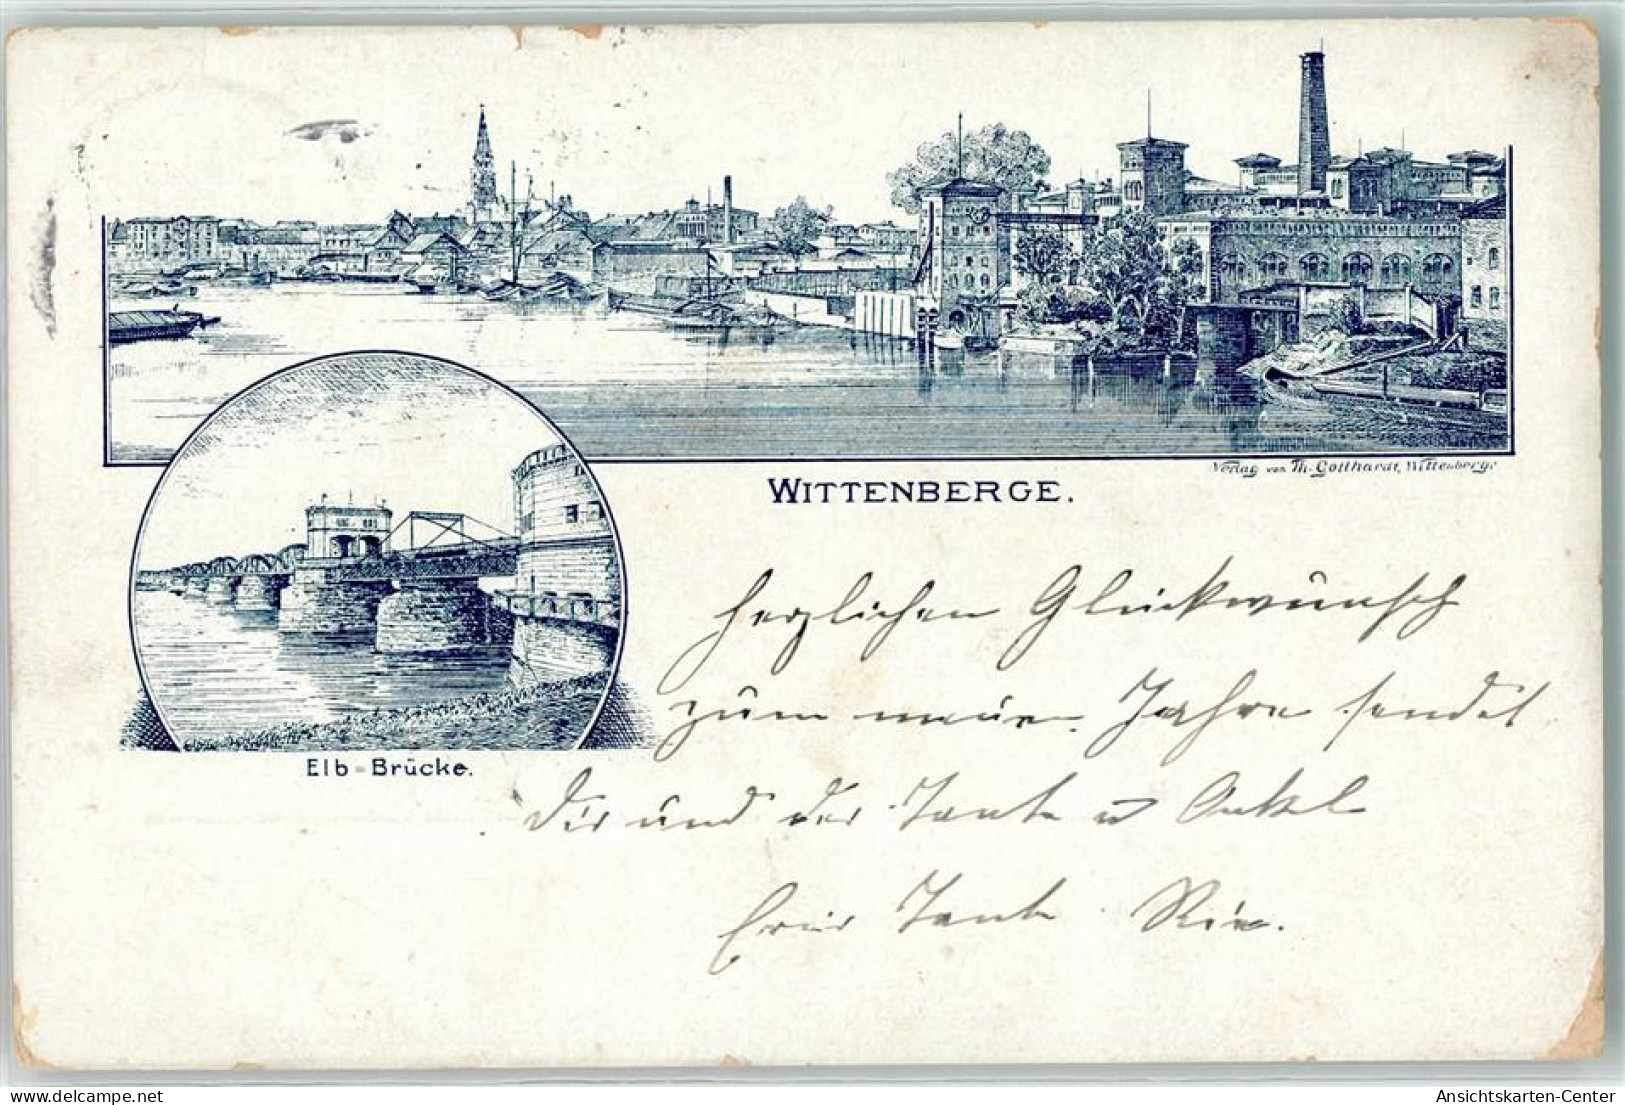 Verlag von Th. Gotthardt, Wittenberge
WITTENBERGE.
Elb-Brücke.
Herzlichen Glückwunsch
zum neuen Jahre sendet
dir und der Tante u Onkel
Tante
Ansichtskarten-Center